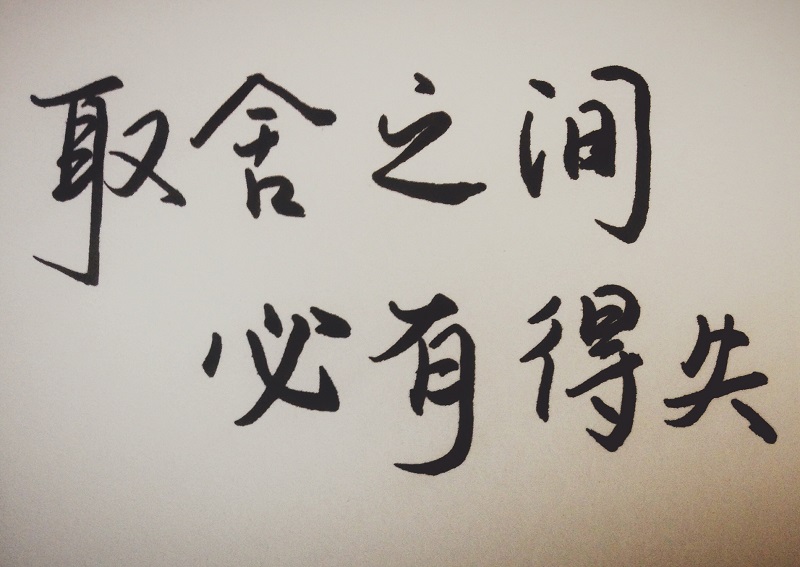 取舍之间
必有得失